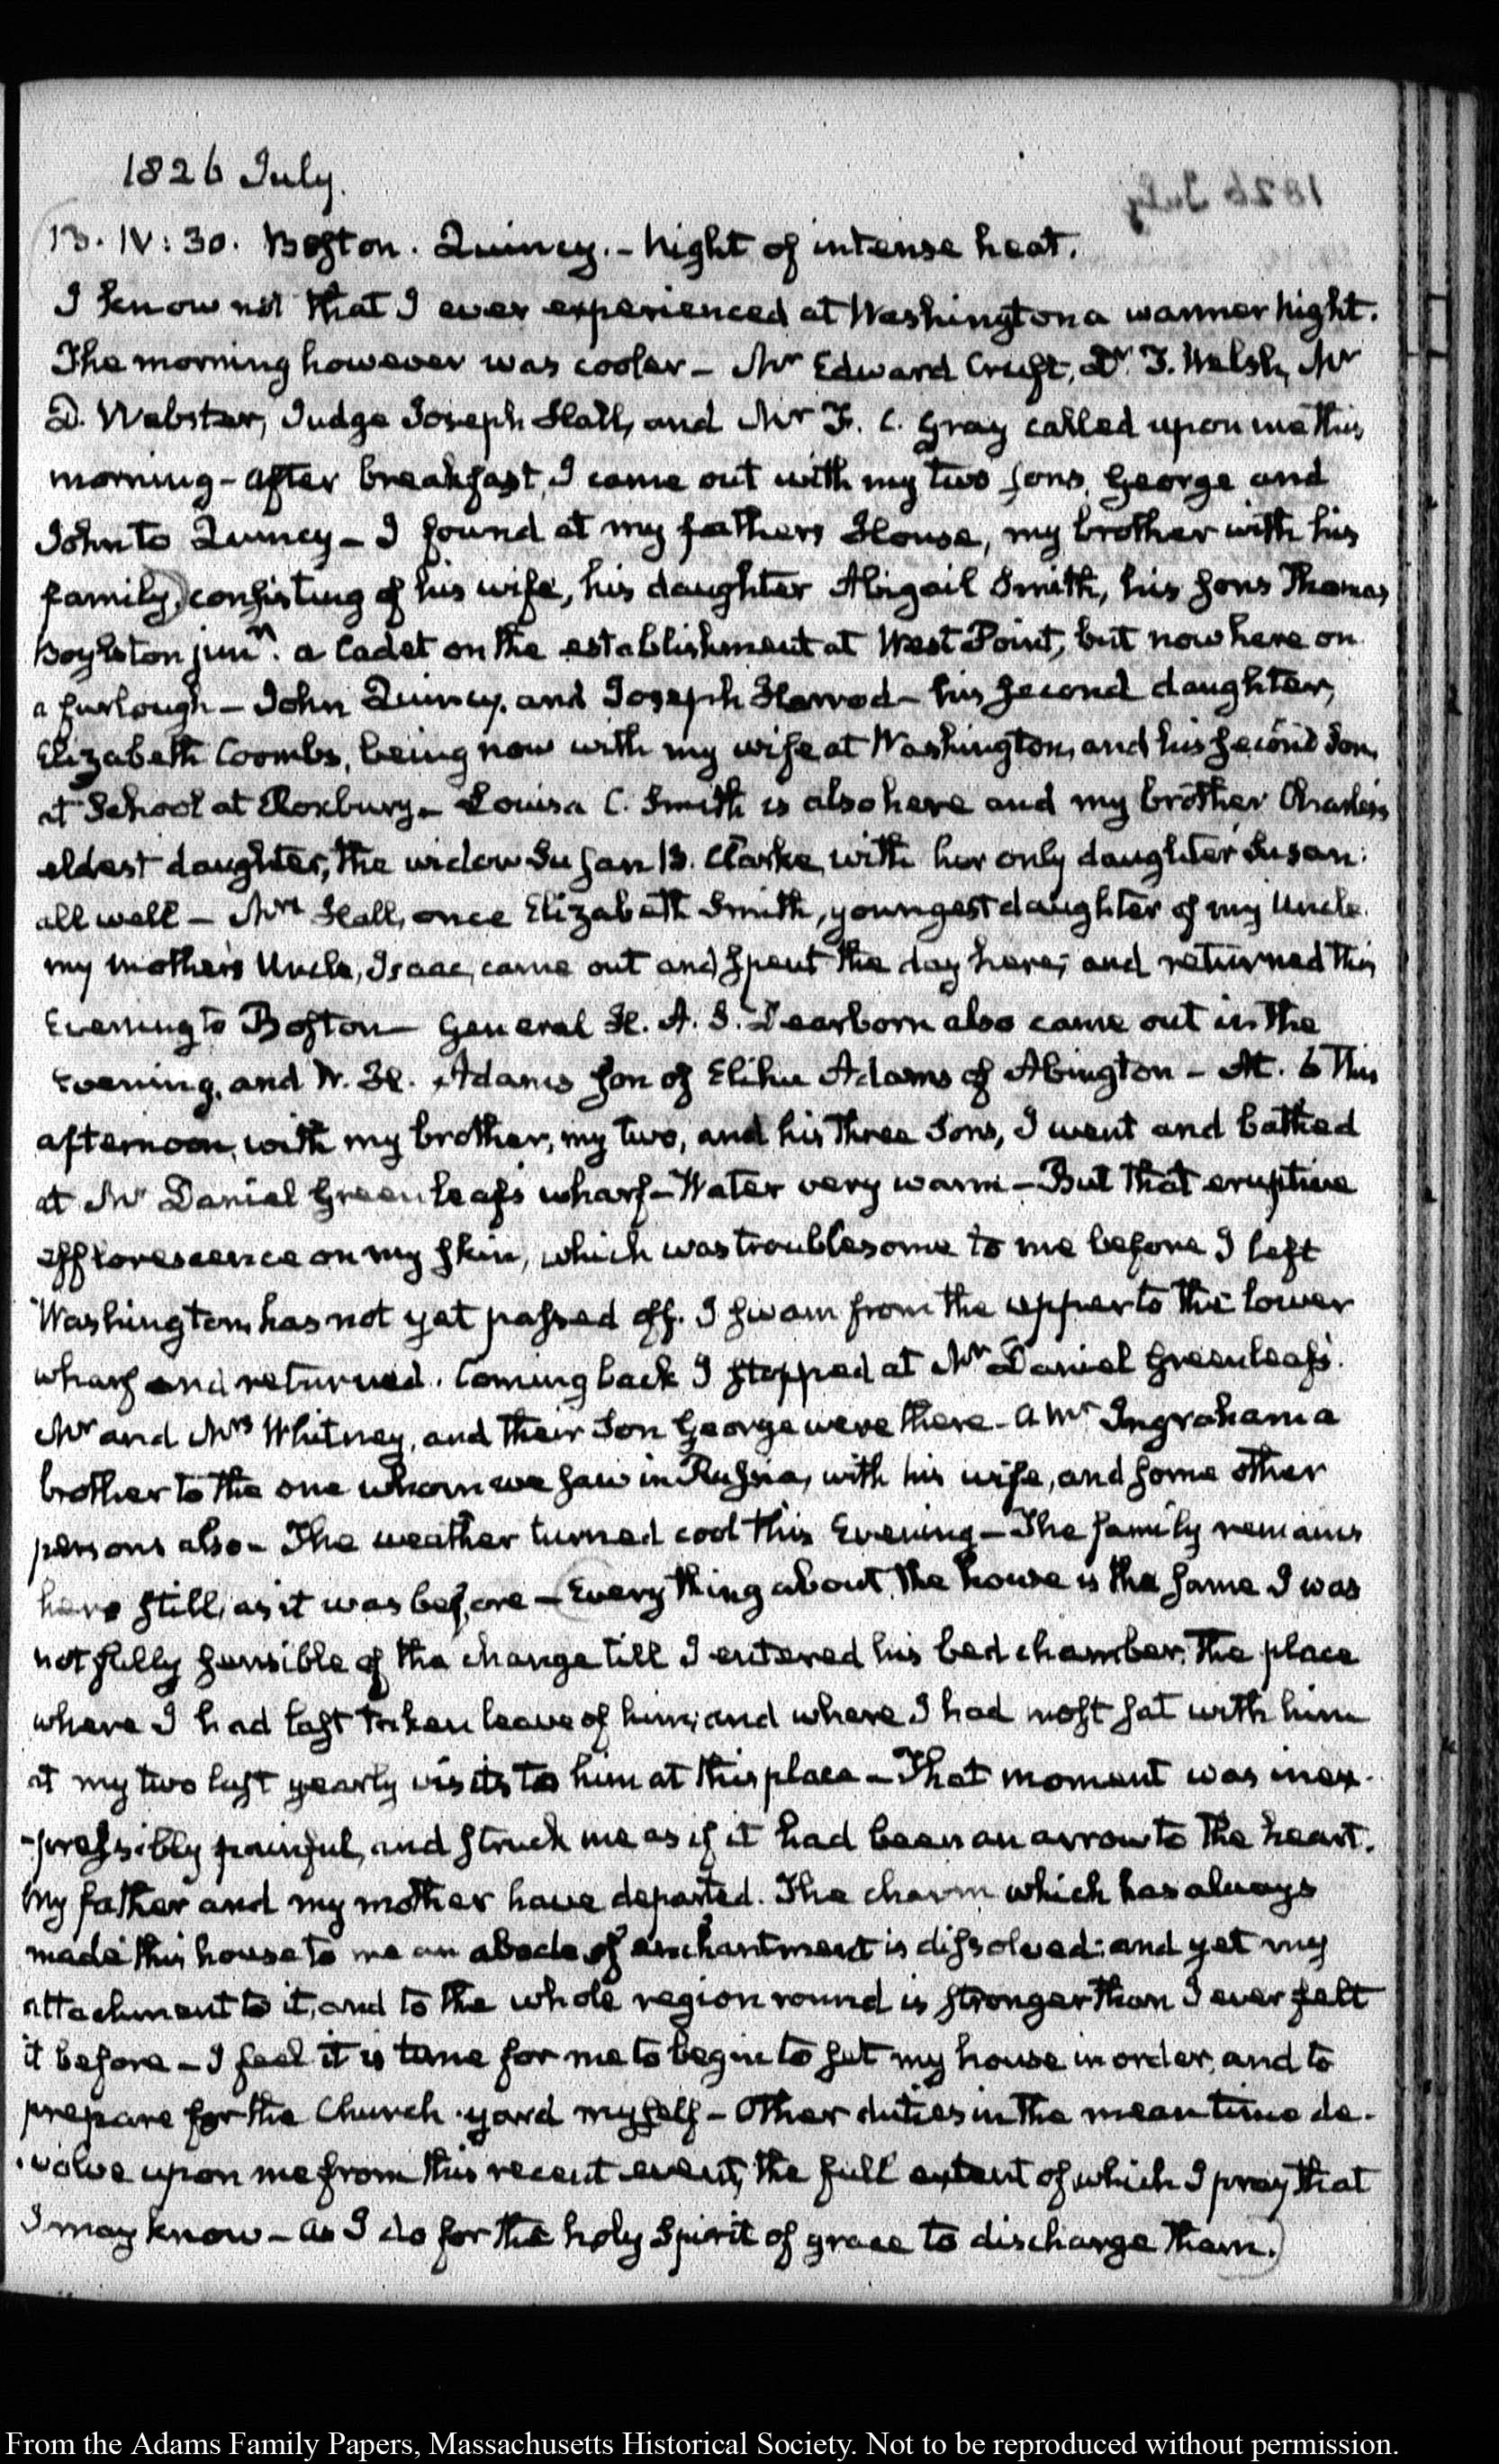 1826 July.
13. IV:30. Boston. Quincy. - Night of intense heat.
I know not that I ever experienced at Washington a warmer night.
The morning however was cooler - Mr Edward Cruft, Dr. T. Welsh, Mr
D. Webster, Judge Joseph Hall, and Mr F. C. Gray called upon me this
morning - After breakfast, I came out with my two Sons, George and
John to Quincy - I found at my fathers House, my brother with his
family, consisting of his wife, his daughter Abigail Smith, his Sons Thomas
Boylston junr. a Cadet on the establishment at West Point, but now here on
a furlough - John Quincy, and Joseph Harrod - his second daughter,
Elizabeth Coombs, being now with my wife at Washington, and his second Son,
at School at Roxbury - Louisa C. Smith is also here and my brother Charles's
eldest daughter, the widow Susan B. Clarke, with her only daughter Susan:
all well - Mrs Hall, once Elizabeth Smith, youngest daughter of my Uncle
my mother's Uncle, Isaac, came out and spent the day here; and returned this
Evening to Boston - General H. A. S. Dearborn also came out in the
Evening, and W. H. Adams son of Elihu Adams of Abington - At. 6 this
afternoon, with my brother, my two, and his three Sons, I went and bathed
at Mr Daniel Greenleaf's wharf - Water very warm - But that eruptive
efflorescence on my skin, which was troublesome to me before I left
Washington, has not yet passed off. I swam from the upper to the lower
wharf and returned. Coming back I stopped at Mr Daniel Greenleaf's.
Mr and Mrs Whitney, and their Son George were there - A Mr Ingraham a
brother to the one whom we saw in Russia, with his wife, and some other
persons also - The weather turned cool this Evening - The family remains
here still, as it was before - Every thing about the house is the same I was
not fully sensible of the change till I entered his bed chamber, the place
where I had last taken leave of him; and where I had most sat with him
at my two last yearly visits to him at this place - That moment was inex-
-pressibly painful, and struck me as if it had been an arrow to the heart.
My father and my mother have departed. The charm which has always
made this house to me an abode of enchantment is dissolved: and yet my
attachment to it, and to the whole region round is stronger than I ever felt
it before - I feel it is time for me to begin to set my house in order, and to
prepare for the Church-yard myself - Other duties in the mean time de-
-volve upon me from this recent event, the full extent of which I pray that
I may know - as I do for the holy Spirit of grace to discharge them.
From the Adams Family Papers, Massachusetts Historical Society. Not to be reproduced without permission.